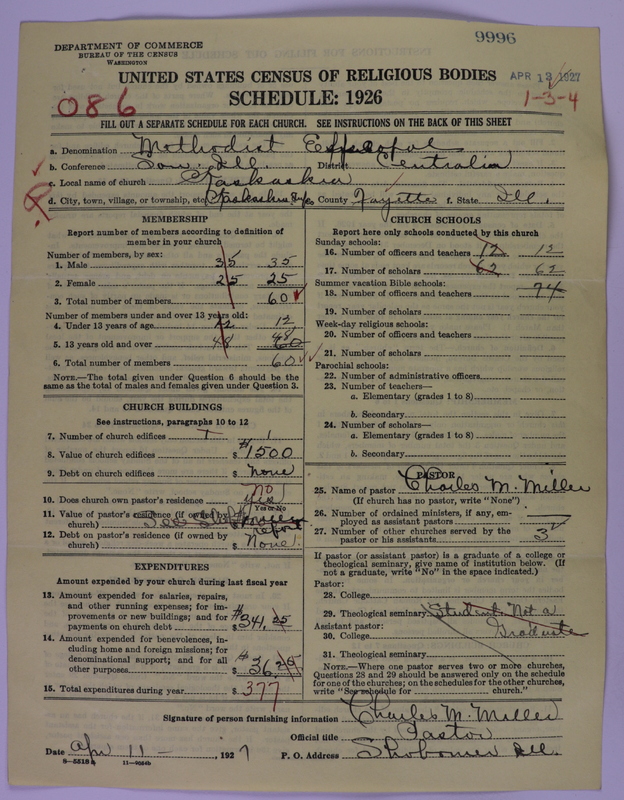 9996
DEPARTMENT OF COMMERCE
BUREAU OF THE CENSUS
WASHINGTON
UNITED STATES CENSUS OF RELIGIOUS BODIES
APR 13 1927
086
SCHEDULE: 1926
1-3-4
FILL OUT A SEPARATE SCHEDULE FOR EACH CHURCH. SEE INSTRUCTIONS ON THE BACK OF THIS SHEET
a. Denomination Methodist Episcopal
b. Conference Sou. Ill. District Centralia
c. Local name of church Kaskaskia
d. City, town, village, or township, etc. Kaskaskia County Fayette f. State Ill.
MEMBERSHIP
Report number of members according to definition of
member in your church
Number of members, by sex:
1. Male 35 35
2. Female 25 25
3. Total number of members 60
Number of members under and over 13 years old:
4. Under 13 years of age 12 12
5. 13 years old and over 48 48 60
6. Total number of members 60
NOTE.—The total given under Question 6 should be
the same as the total of males and females given under Question 3.
CHURCH BUILDINGS
See instructions, paragraphs 10 to 12
7. Number of church edifices 1 1
8. Value of church edifices $ 1500
9. Debt on church edifices $ None
10. Does church own pastor's residence No Yes
Yes or No
11. Value of pastor's residence (if owned by
church) $
12. Debt on pastor's residence (if owned by
church) $ None.
EXPENDITURES
Amount expended by your church during last fiscal year
13. Amount expended for salaries, repairs,
and other running expenses; for im-
provements or new buildings; and for
payments on church debt $ 341.25
14. Amount expended for benevolences, in-
cluding home and foreign missions; for
denominational support; and for all
other purposes $ 36.25
15. Total expenditures during year $ 377
CHURCH SCHOOLS
Report here only schools conducted by this church
Sunday schools:
16. Number of officers and teachers 12 12
17. Number of scholars 62 62
Summer vacation Bible schools:
18. Number of officers and teachers 74
19. Number of scholars
Week-day religious schools:
20. Number of officers and teachers
21. Number of scholars
Parochial schools:
22. Number of administrative officers
23. Number of teachers—
a. Elementary (grades 1 to 8)
b. Secondary
24. Number of scholars—
a. Elementary (grades 1 to 8)
b. Secondary
PASTOR
25. Name of pastor Charles M. Miller
(If church has no pastor, write "None")
26. Number of ordained ministers, if any, em-
ployed as assistant pastors
27. Number of other churches served by the
pastor or his assistants 3
If pastor (or assistant pastor) is a graduate of a college or
theological seminary, give name of institution below. (If
not a graduate, write "No" in the space indicated.)
Pastor:
28. College
29. Theological seminary Student Not a
Assistant pastor:
30. College Graduate
31. Theological seminary
NOTE.—Where one pastor serves two or more churches,
Questions 28 and 29 should be answered only on the schedule
for one of the churches; on the schedules for the other churches,
write "See schedule for church."
Signature of person furnishing information Charles M. Miller
Official title Pastor
Date Apr 11 - , 1927 P. O. Address Shobonier Ill.
8-5518 11-9664b